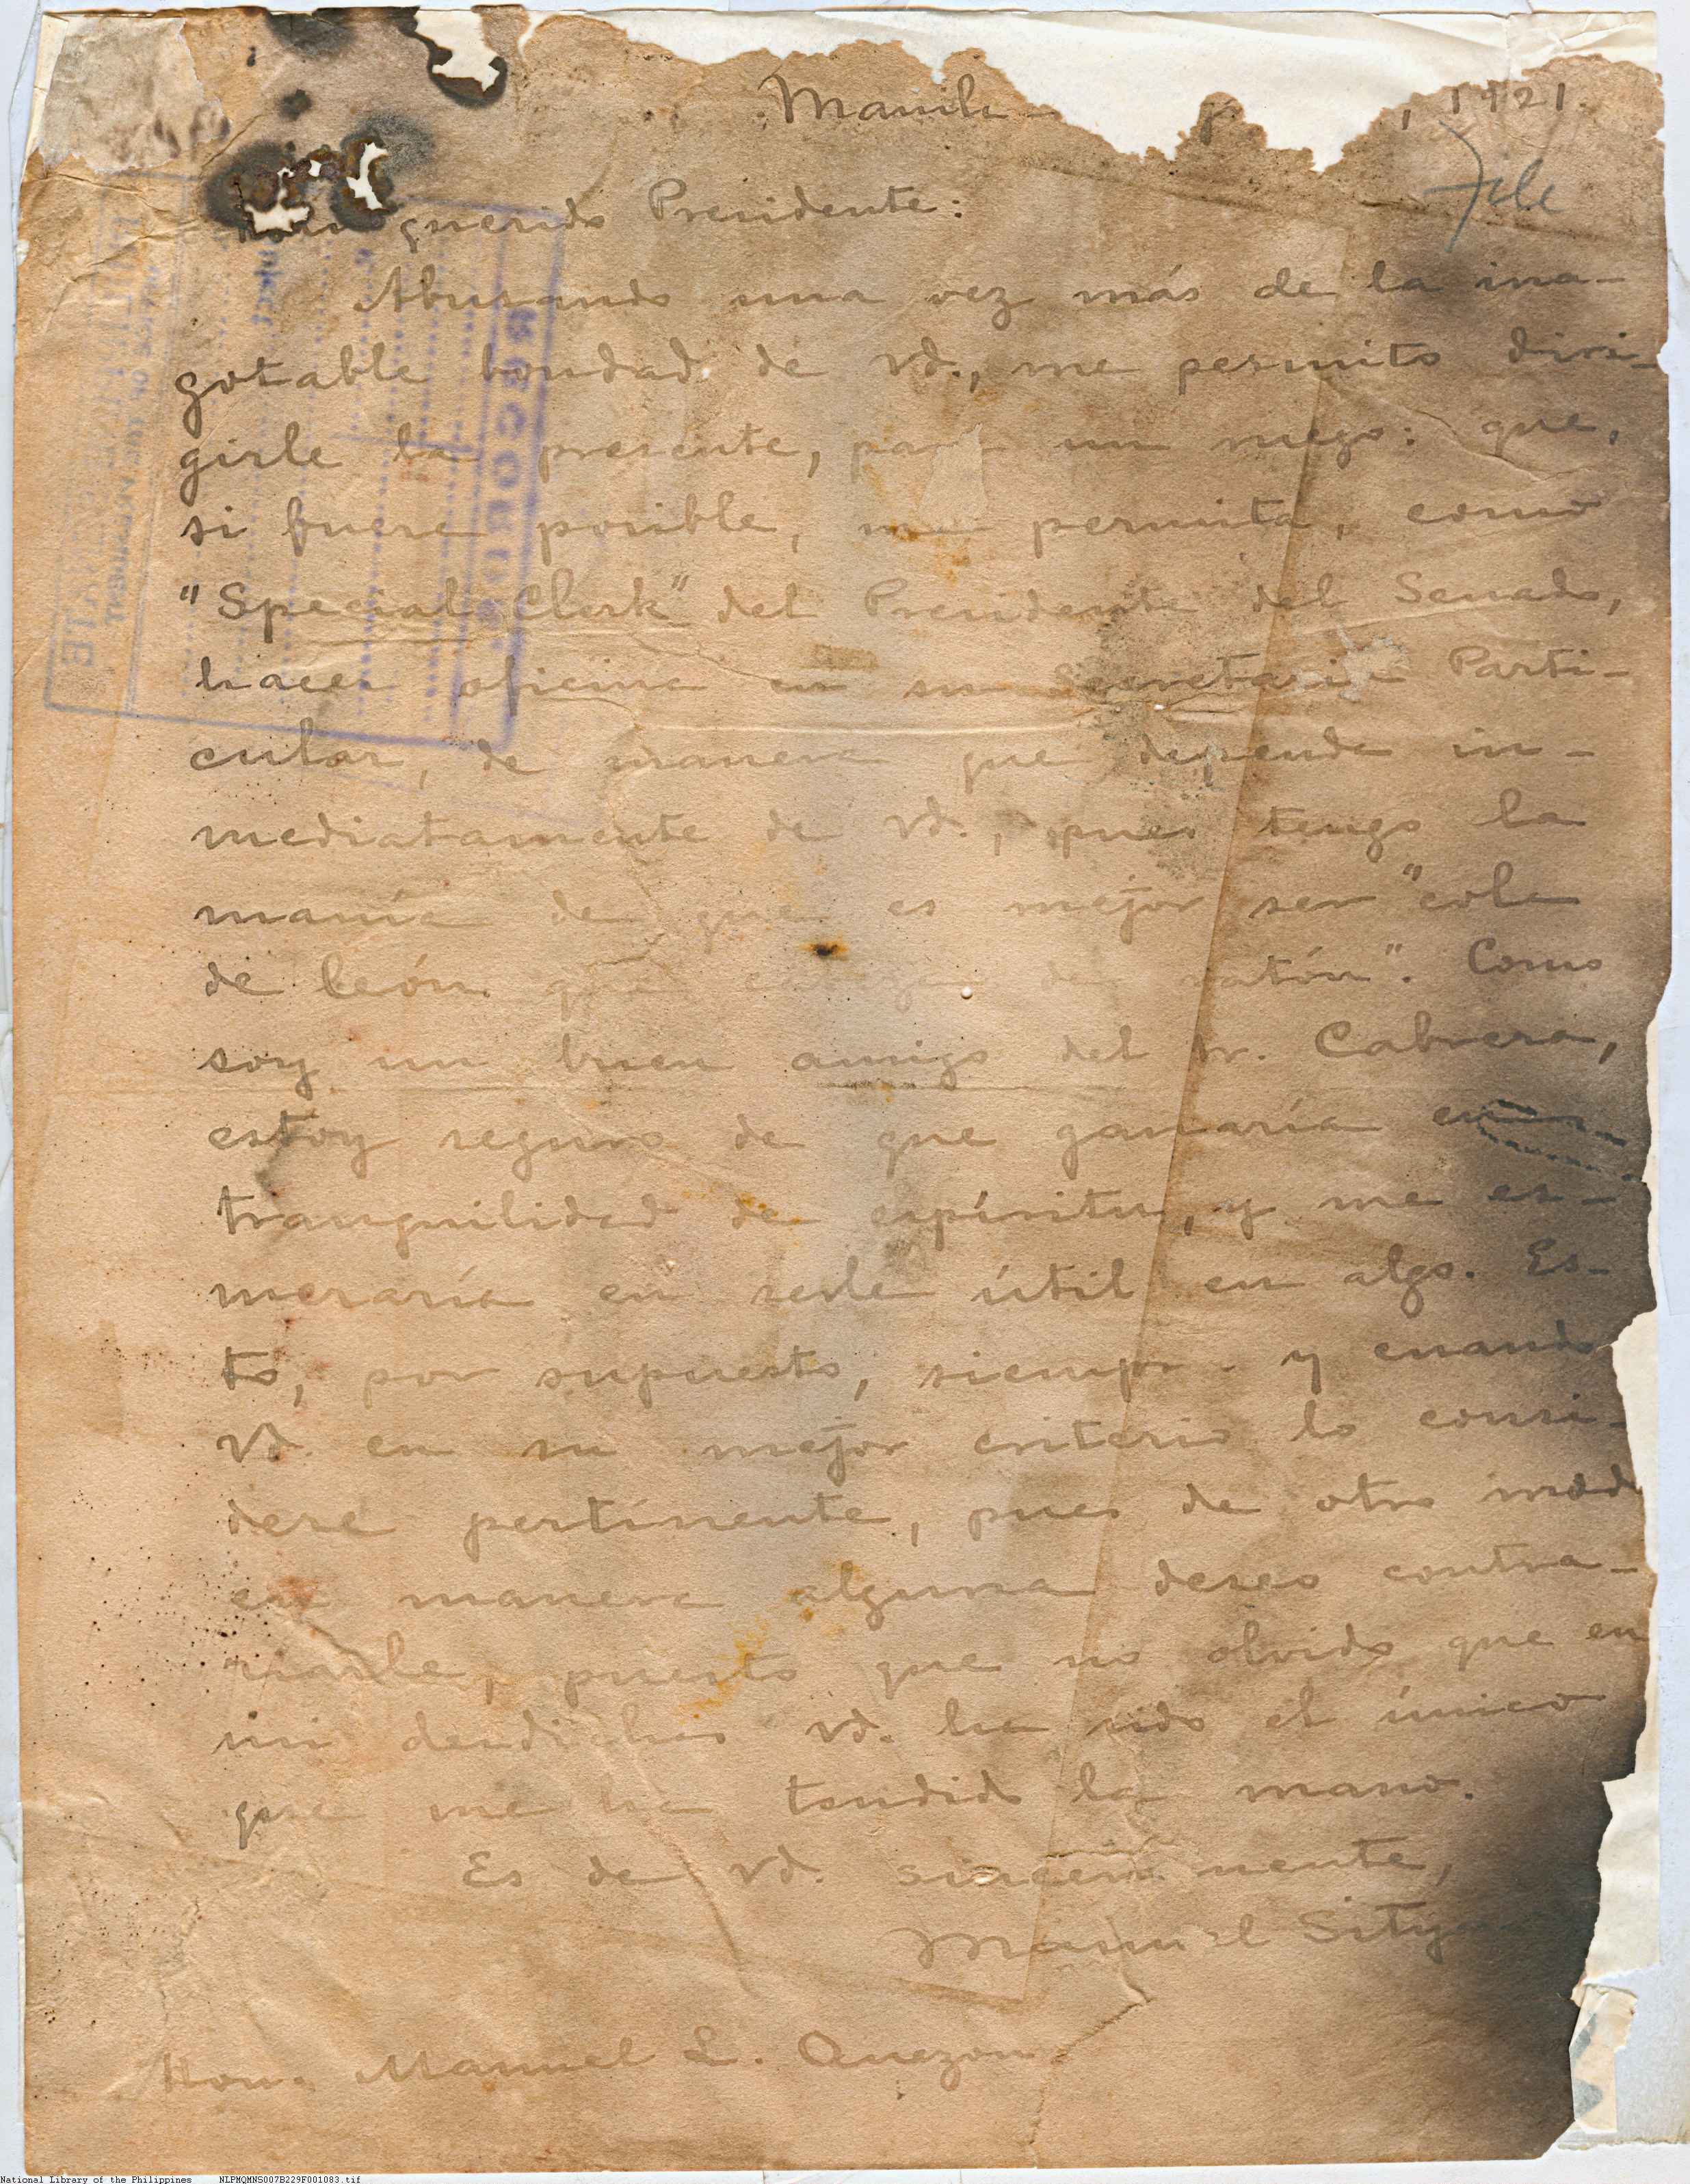 Manila , 1921.
File
querido Presidente:
Abusando una vez más de la ina-
gotable bondad de Vd., me permito diri-
girle la presente, para un ruego: que,
si fuere posible, me permita, como
"Special Clerk" del Presidente del Senado,
hacer oficina en su Secretaría Parti-
cular, de manera que dependa in-
mediatamente de Vd., pues tengo la
manía de que es mejor ser "cola
de león que cabeza de ratón". Como
soy un buen amigo del Sr. Cabrera,
estoy seguro de que ganaría en
tranquilidad de espíritu, y me es-
meraría en serle útil en algo. Es-
to, por supuesto, siempre y cuando
Vd. en su mejor criterio lo consi-
dere pertinente, pues de otro modo
en manera alguna deseo contra-
riarle, puesto que no olvido que en
mi desdichas Vd. ha sido el único
que me ha tendido la mano.
Es de Vd. sinceramente,
Manuel Sityar
Hon. Manuel L. Quezon
RECORDS
National Library of the Philippines NLPMQMNS007B229F001083.tif